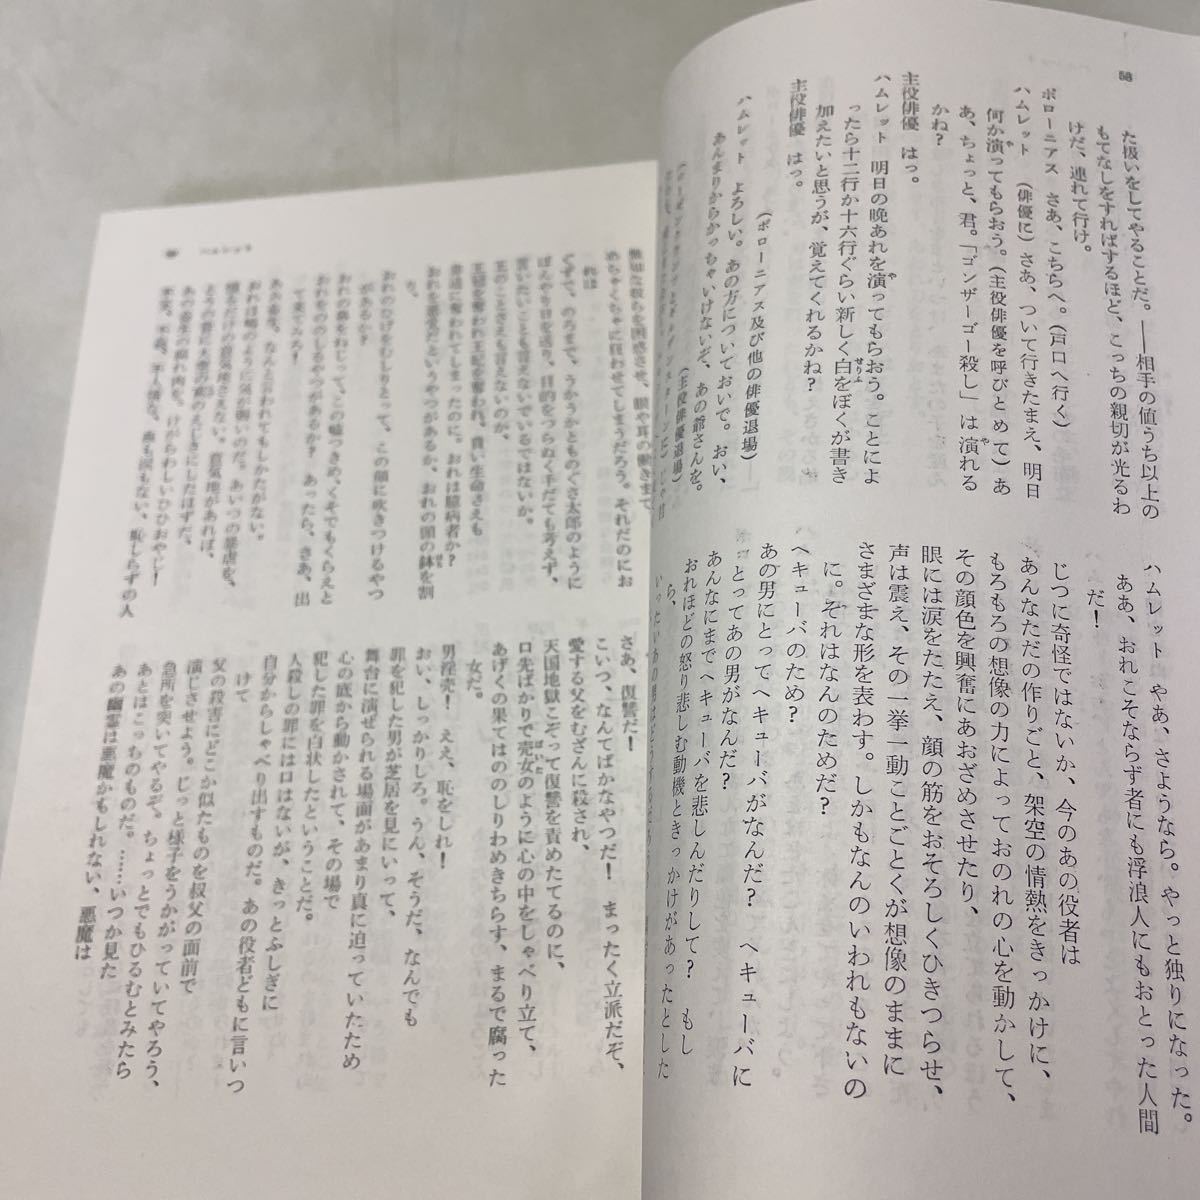 58
た扱いをしてやることだ。――相手の値うち以上の
もてなしをすればするほど、こっちの親切が光るわ
けだ、連れて行け。
ポローニアス　さあ、こちらへ。（戸口へ行く）
ハムレット　（俳優に）さあ、ついて行きたまえ、明日
何か演ってもらおう。（主役俳優を呼びとめて）あ
あ、ちょっと、君。「ゴンザーゴー殺し」は演れる
かね？
主役俳優　はっ。
ハムレット　明日の晩あれを演ってもらおう。ことによ
ったら十二行か十六行ぐらい新しく白をぼくが書き
加えたいと思うが、覚えてくれるかね？
主役俳優　はっ。
（ポローニアス及び他の俳優退場）
ハムレット　よろしい。あの方についておいで。おい、
あんまりからかっちゃいけないぞ、あの爺さんを。
（主役俳優退場）
ハムレット　やあ、さようなら。やっと独りになった。
ああ、おれこそならず者にも浮浪人にもおとった人間
だ！
じつに奇怪ではないか、今のあの役者は
あんなただの作りごと、架空の情熱をきっかけに、
もろもろの想像の力によっておのれの心を動かして、
その顔色を興奮にあおざめさせたり、
眼には涙をたたえ、顔の筋をおそろしくひきつらせ、
声は震え、その一挙一動ことごとくが想像のままに
さまざまな形を表わす。しかもなんのいわれもないの
に。それはなんのためだ？
ヘキューバのため？
あの男にとってヘキューバがなんだ？　ヘキューバに
とってあの男がなんだ？
あんなにまでヘキューバを悲しんだりして？　もし
おれほどの怒り悲しむ動機ときっかけがあったとした
ら、
いったいあの男はどうするだろう
ハムレット
めちゃくちゃに狂わせてしまうだろう。それだのにお
れは
ぐずで、のろまで、うかうかとものぐさ太郎のように
ぼんやり日を送り、目的をつらぬく手だても考えず、
言いたいことも言えないでいるではないか。
王のことさえも言えないのが、
王冠を奪われ王妃を奪われ、貴い生命さえも
非道に奪われてしまったのに。おれは臆病者か？
おれを悪党だというやつがあるか、おれの頭の鉢を割
り、
おれのひげをむしりとって、この顔に吹きつけるやつ
があるか？
おれの鼻をねじって、この嘘つきめ、くそでもくらえと
おれをののしるやつがあるか？　あったら、さあ、出
て来い？
ああ畜生、なんと言われてもしかたがない。
おれは鳩のように気が弱いのだ。あいつの暴虐を、
憤るだけの意気地さえない。意気地があれば、
とうの昔に大空の鳶のえじきにしたはずだ、
あの畜生の腐れ肉を。けがらわしいひひおやじ！
不実、不義、不人情な、血も涙もない、恥しらずの人
さあ、復讐だ！
こいつ、なんてばかなやつだ！　まったく立派だぞ、
愛する父をむざんに殺され、
天国地獄こぞって復讐を責めたてるのに、
口先ばかりで売女のように心の中をしゃべり立て、
あげくの果てはののしりわめきちらす、まるで腐った
女だ。
男淫売！　ええ、恥をしれ！
おい、しっかりしろ。うん、そうだ、なんでも
罪を犯した男が芝居を見にいって、
舞台に演ぜられる場面があまり真に迫っていたため
心の底から動かされて、その場で
犯した罪を白状したということだ。
人殺しの罪には口はないが、きっとふしぎに
自分からしゃべり出すものだ。あの役者どもに言いつ
けて
父の殺害にどこか似たものを叔父の面前で
演じさせよう。じっと様子をうかがっていてやろう、
急所を突いてやるぞ。ちょっとでもひるむとみたら
あとはこっちのものだ。……いつか見た
あの幽霊は悪魔かもしれない、悪魔は